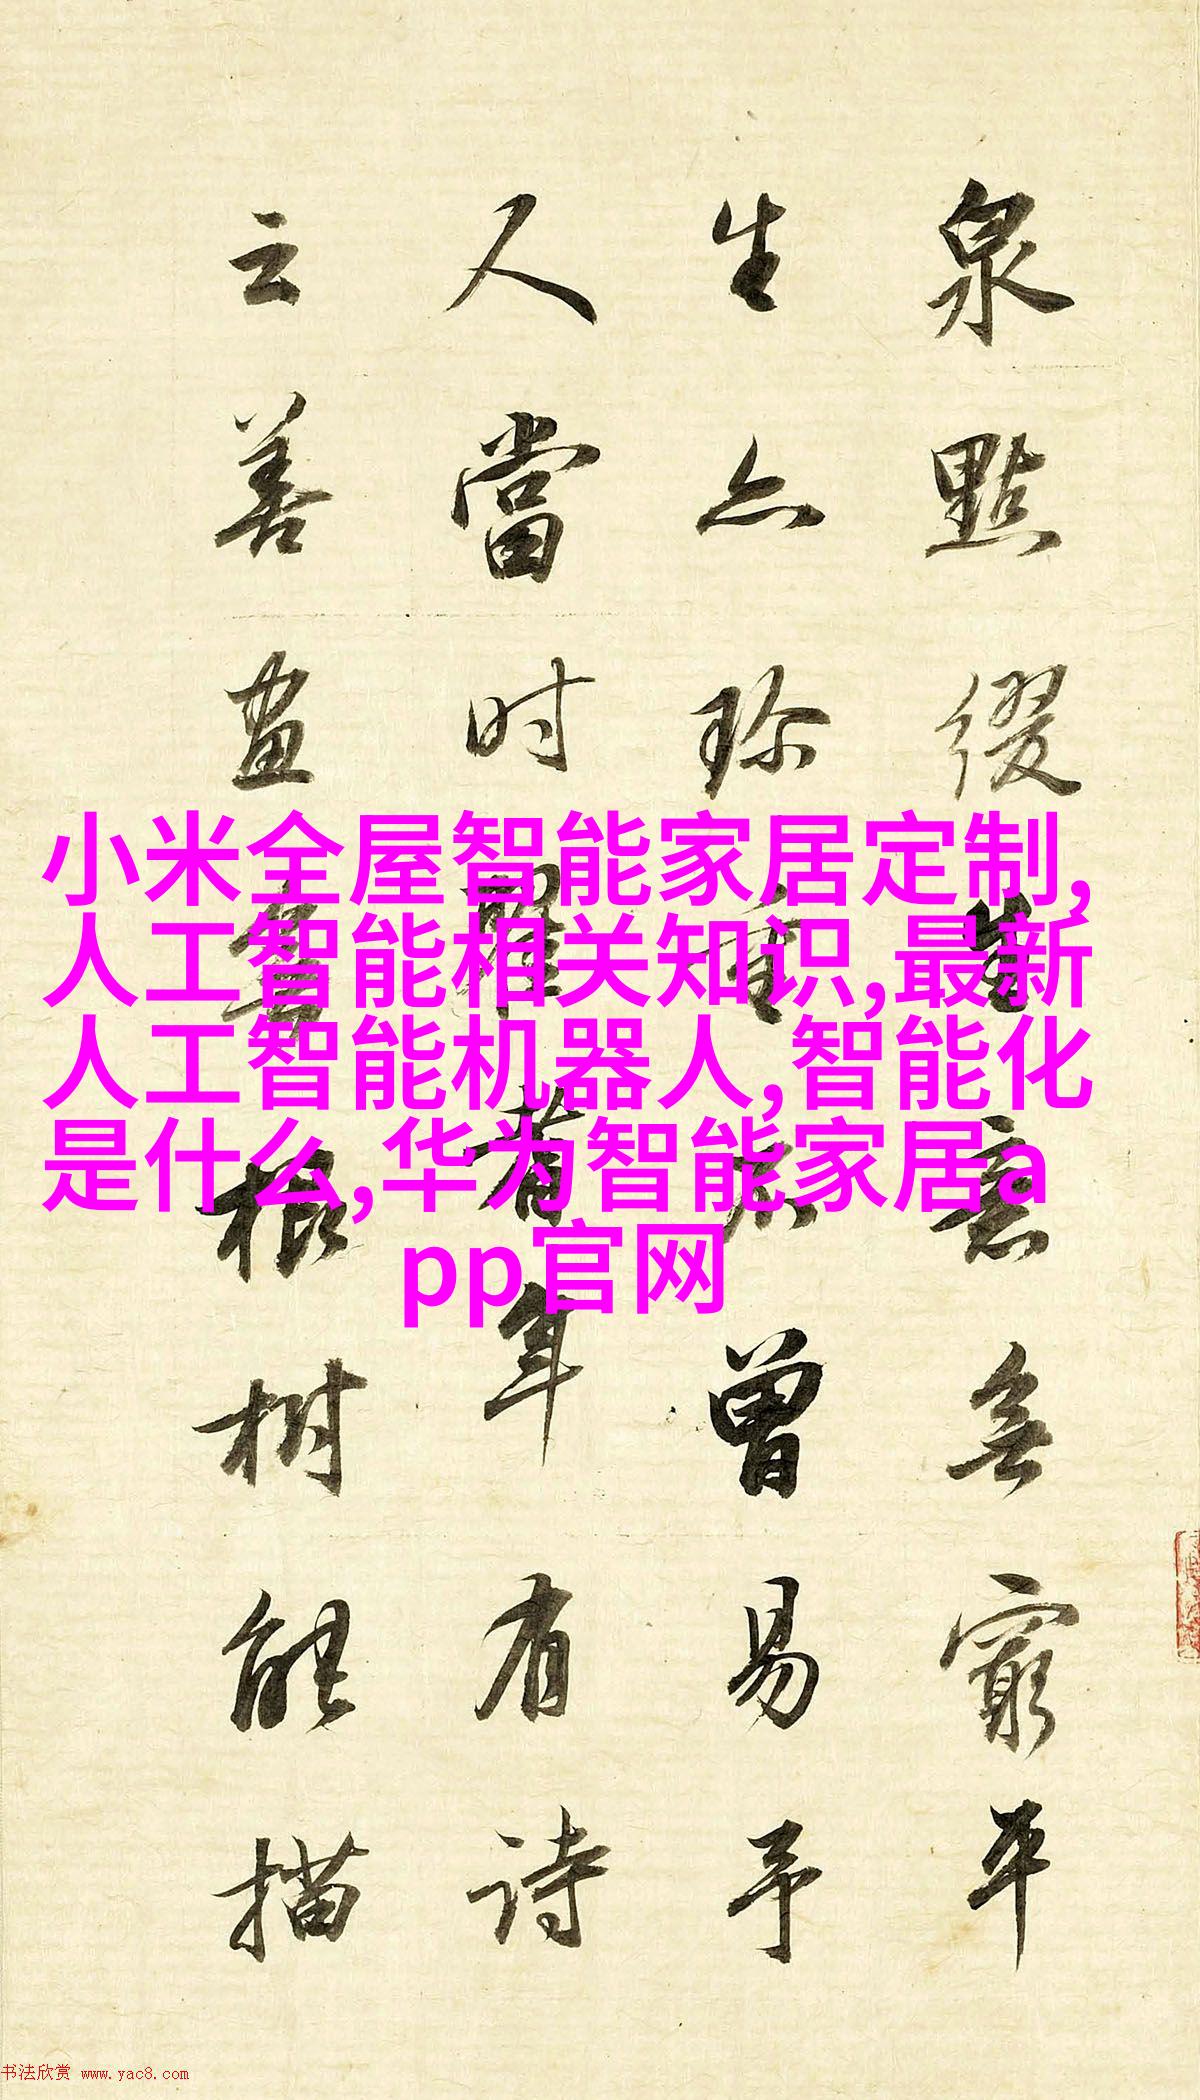 泉點缀生意無窮平
生亦珍重不曾易予
人當时 者年有诗
云善畫 根樹能描
小米全屋智能家居定制,
人工智能相关知识,最新
人工智能机器人,智能化
是什么,华为智能家居a
pp官网
书法欣赏 www.yac8.com